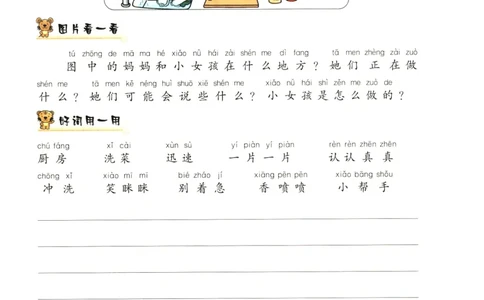 图片看一看
tú zhōng de mā ma hé xiǎo nǚ hái zài shén me dì fang tā men zhèng zài zuò
图中的妈妈和小女孩在什么地方？她们正在做
shén me tā men kě néng huì shuō xiē shén me xiǎo nǚ hái shì zěn me zuò de
什么？她们可能会说些什么？小女孩是怎么做的？
好词用一用
chú fáng xǐ cài xùn sù yí piàn yí piàn rèn rèn zhēn zhēn
厨房 洗菜 迅速 一片一片 认认真真
chōng xǐ xiào mī mī bié zháo jí xiāng pēn pēn xiǎo bāng shǒu
冲洗 笑眯眯 别着急 香喷喷 小帮手